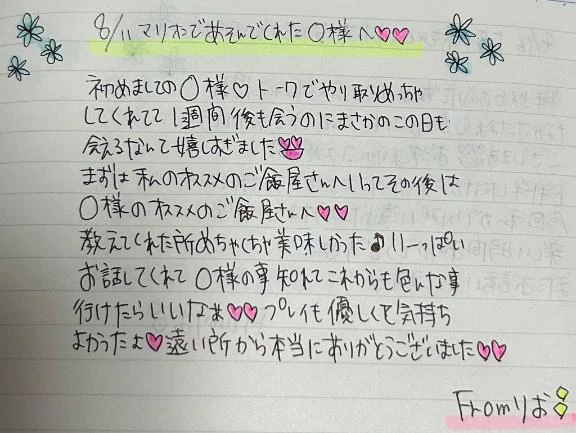 8/11 マリオンであそんでくれた〇様へ♡♡
初めましての〇様♡トークでやり取りめっちゃ
してくれてて1週間後も会うのにまさかのこの日も
会えるなんて嬉しすぎました
まずは私のオススメのご飯屋さんへいってその後は
〇様のオススメのご飯屋さんへ♡♡
教えてくれた所めちゃくちゃ美味しかった♪いーっぱい
お話してくれて〇様の事知れてこれからも色んな事
行けたらいいなぁ♡♡プレイも優しくて気持ち
よかったよ♡遠い所から本当にありがとうございました♡♡
Fromりお